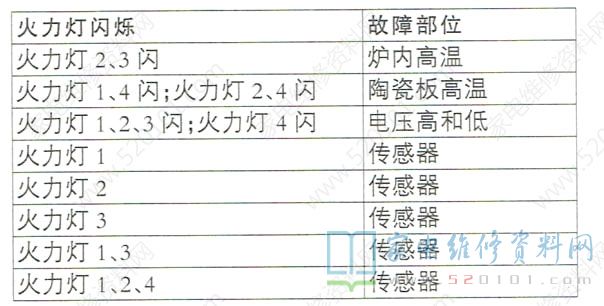 火力灯闪烁 故障部位
火力灯 2、3 闪 炉内高温
火力灯 1、4 闪;火力灯 2、4 闪 陶瓷板高温
火力灯 1、2、3 闪;火力灯 4 闪 电压高和低
火力灯 1 传感器
火力灯 2 传感器
火力灯 3 传感器
火力灯 1、3 传感器
火力灯 1、2、4 传感器
家电维修资料网
www.520101.com